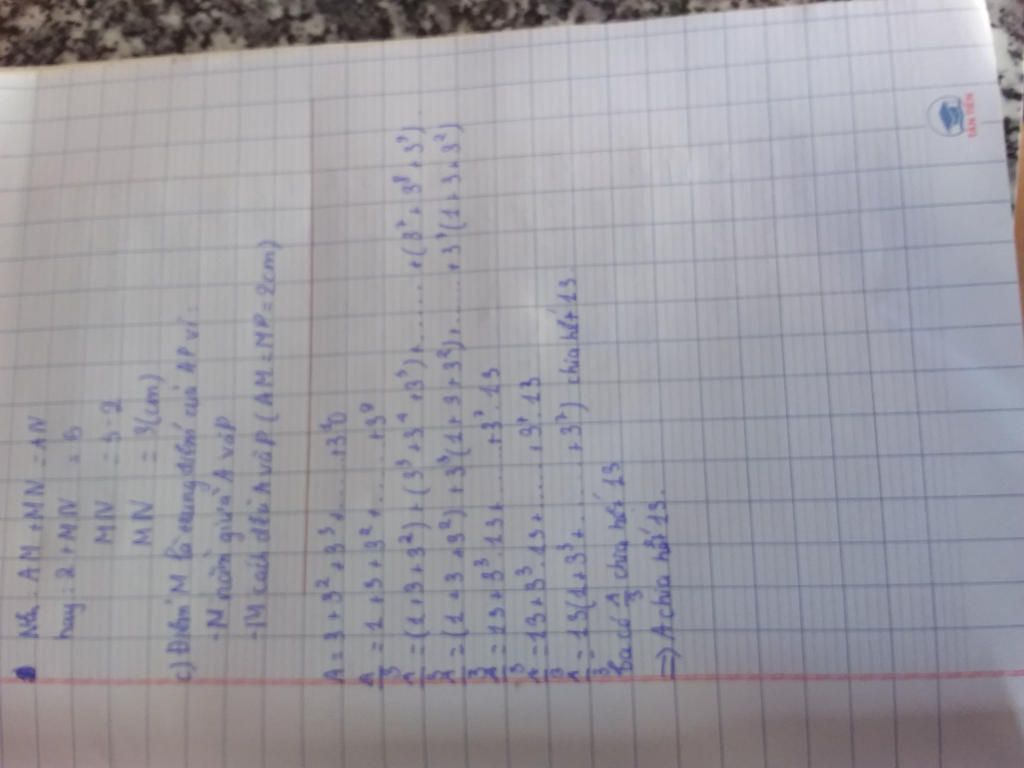 Nên: AM + MN = AN
hay: 2 + MN = 5
MN = 5 - 2
MN = 3(cm)
c) Điểm M là trung điểm của AP vì:
- M nằm giữa A và P
- M cách đều A và P (AM = MP = 2cm)
A = 3 + 3² + 3³ + ...... + 3
A/3 = 1 + 3 + 3² + ...... + 3
A/3 = (1 + 3 + 3²) + (3³ + 3⁴ + 3⁵) + ...... + (3⁷ + 3⁸ + 3⁹)
A/3 = (1 + 3 + 3²) + 3³(1 + 3 + 3²) + ...... + 3⁷(1 + 3 + 3²)
A/3 = 13 + 3³.13 + ...... + 3⁷.13
A/3 = 13 + 3³.13 + ...... + 3⁷.13
A/3 = 13(1 + 3³ + ...... + 3⁷) chia hết 13
Ta có A/3 chia hết 13
=> A chia hết 13.
TÂN TIẾN